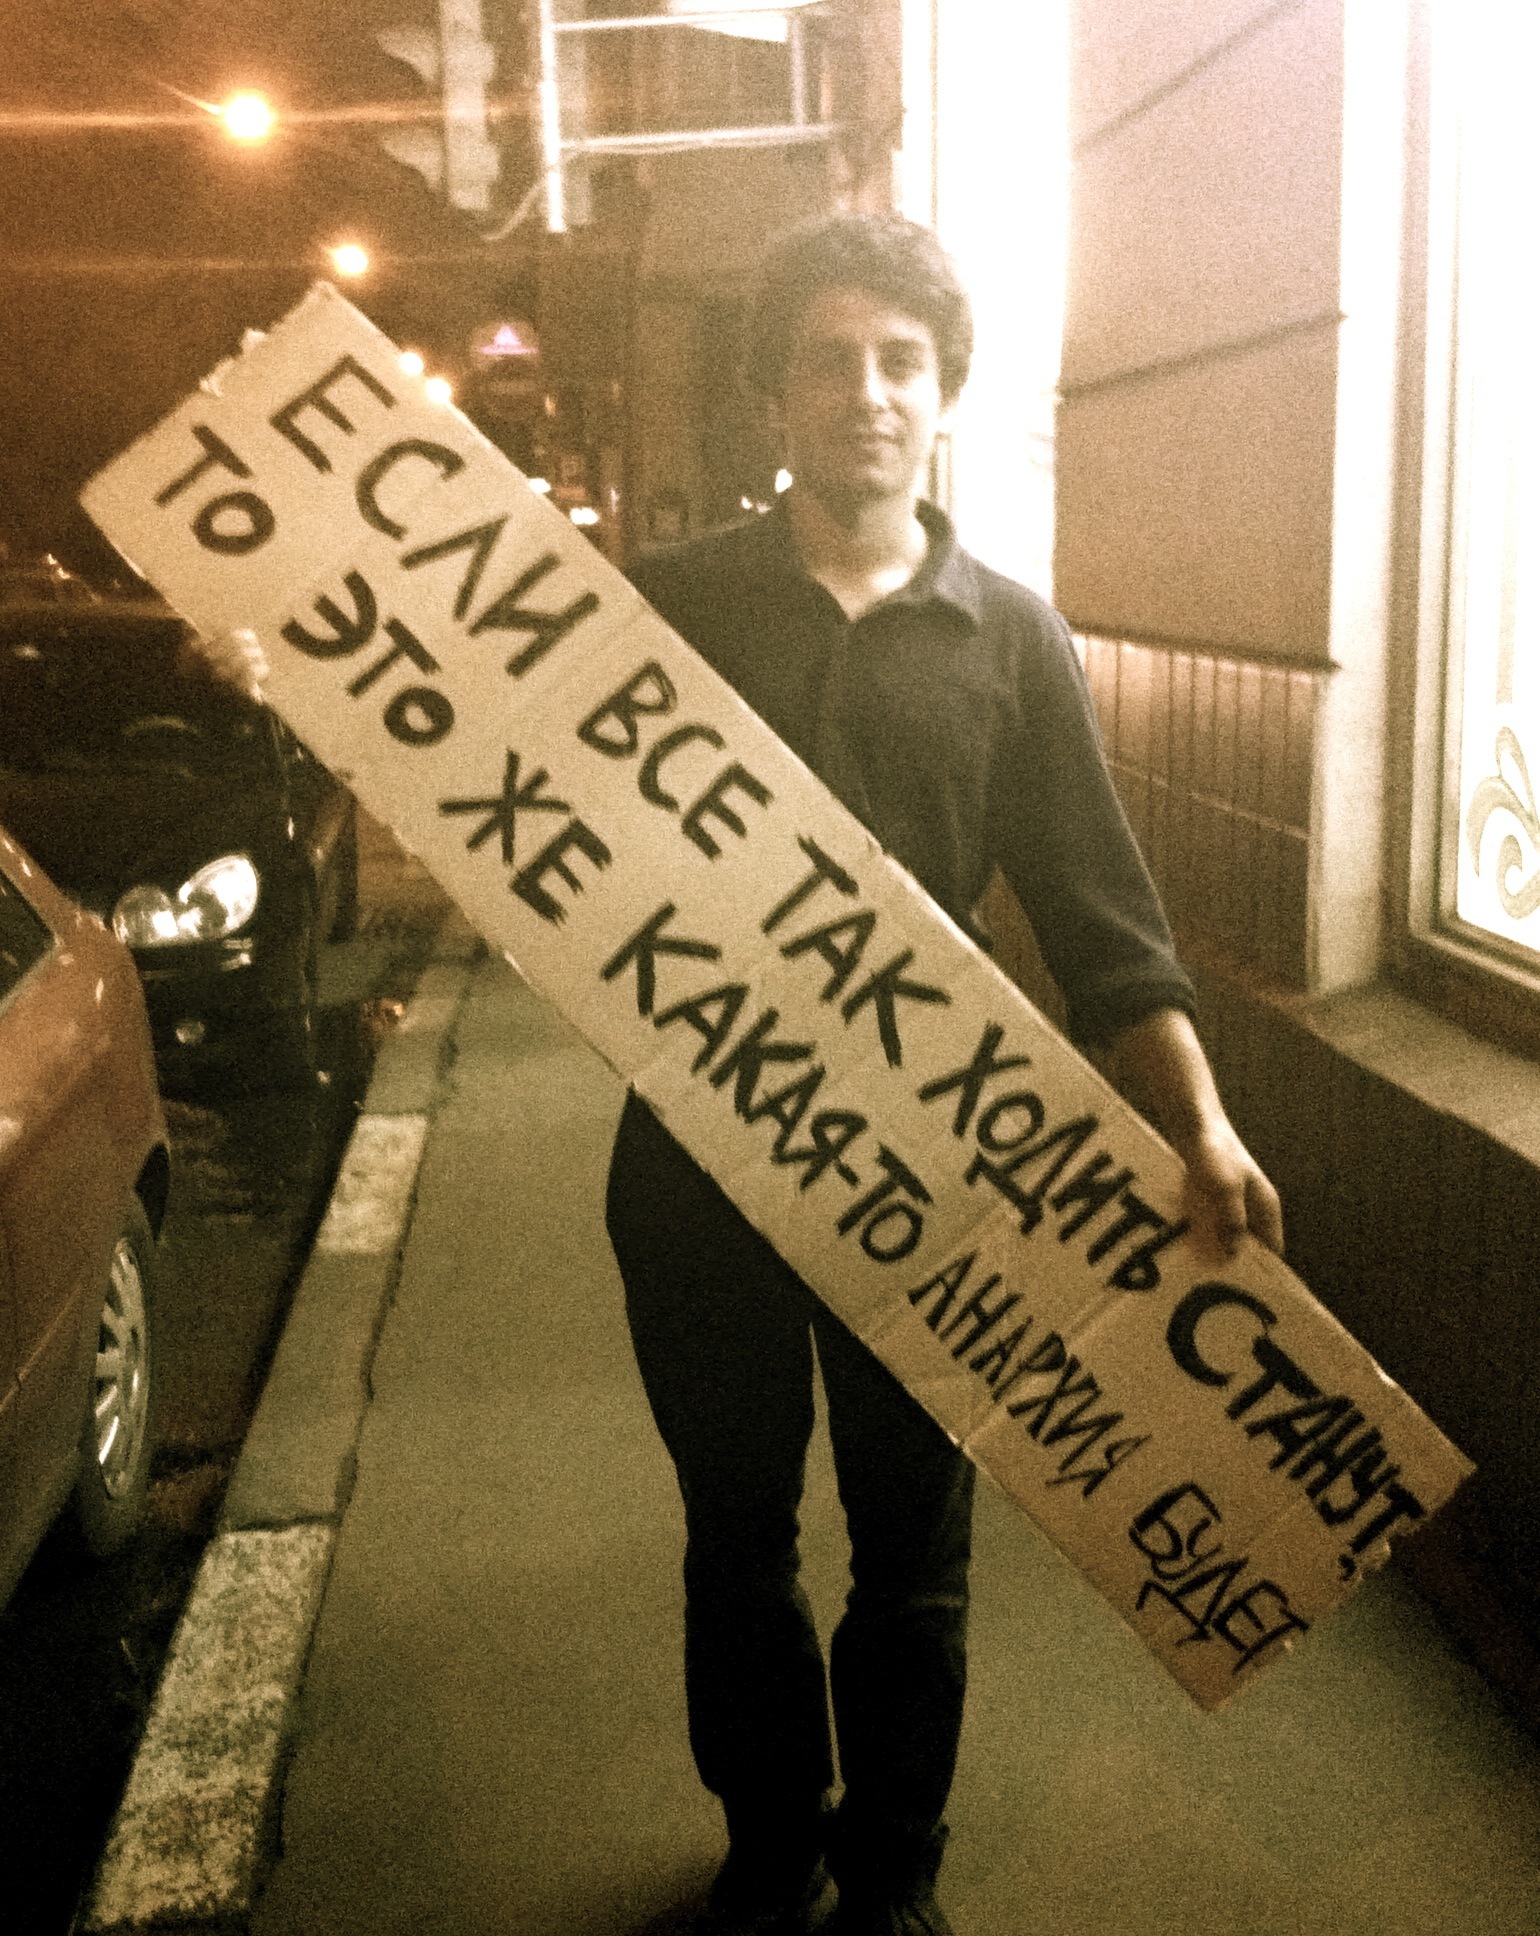 ЕСЛИ ВСЕ ТАК ХОДИТЬ СТАНУТ,
ТО ЭТО ЖЕ КАКАЯ-ТО АНАРХИЯ БУДЕТ